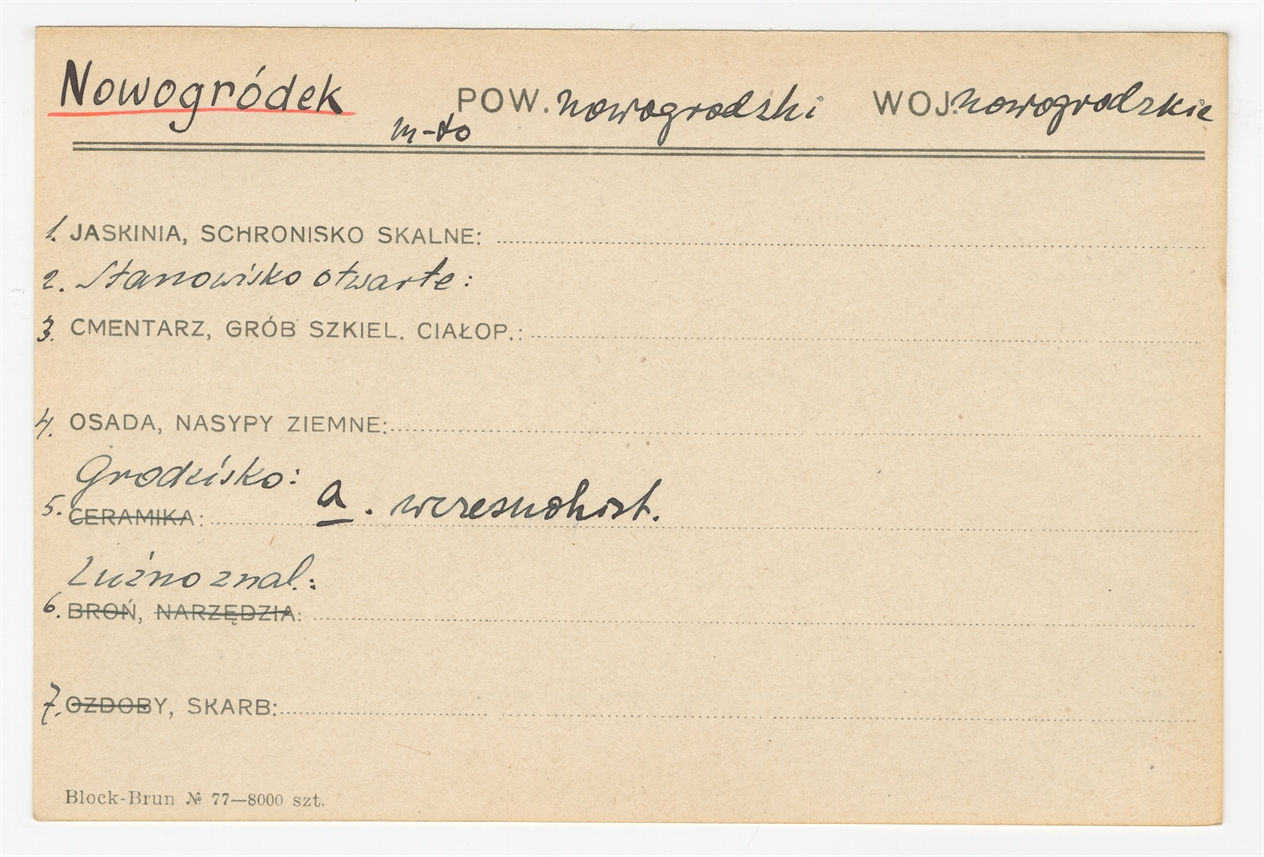 Nowogródek POW. nowogrodzki WOJ. nowogrodzkie
m-to
1. JASKINIA, SCHRONISKO SKALNE:
2. Stanowisko otwarte:
3. CMENTARZ, GRÓB SZKIEL. CIAŁOP.:
4. OSADA, NASYPY ZIEMNE:
Grodzisko:
5. CERAMIKA: a. wczesnohist.
Luźno znal.:
6. BROŃ, NARZĘDZIA:
7. OZDOBY, SKARB:
Block-Brun № 77—8000 szt.